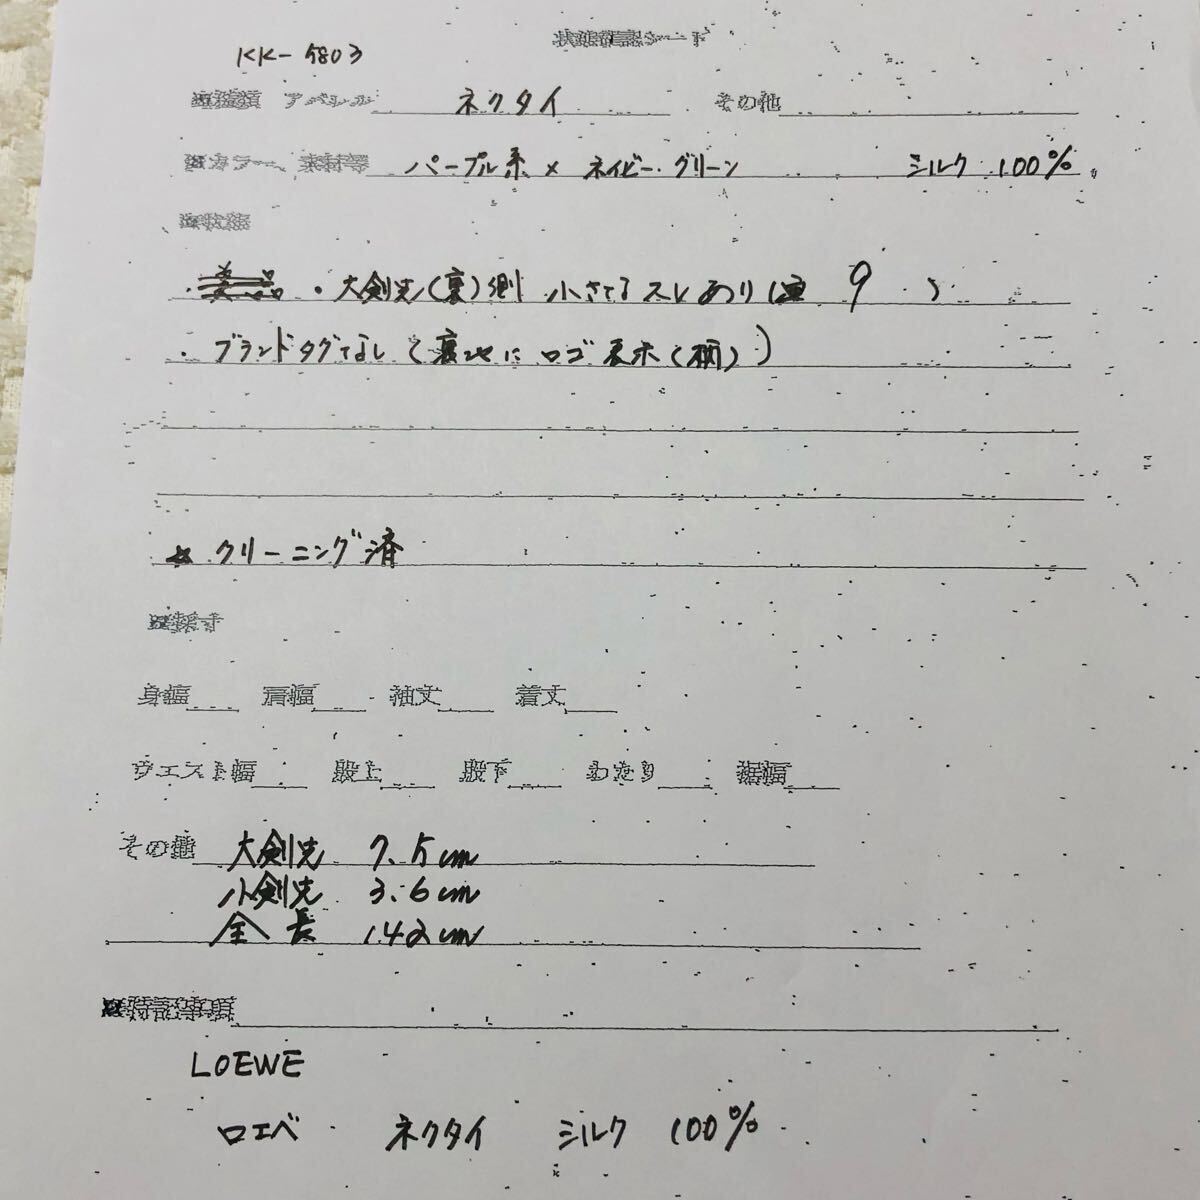 状態確認シート
KK-5803
■種類 アパレル ネクタイ その他
■カラー、素材等 パープル系 × ネイビー・グリーン シルク 100%
■状態
・美品 ・大剣先(裏)側 小さなスレあり( 9 )
・ブランドタグなし (裏地に ロゴ表示(柄))
☆ クリーニング済
■採寸
身幅 肩幅 袖丈 着丈
ウエスト幅 股上 股下 わたり 裾幅
その他 大剣先 7.5cm
小剣先 3.6cm
全長 142cm
■特記事項
LOEWE
ロエベ ネクタイ シルク 100%